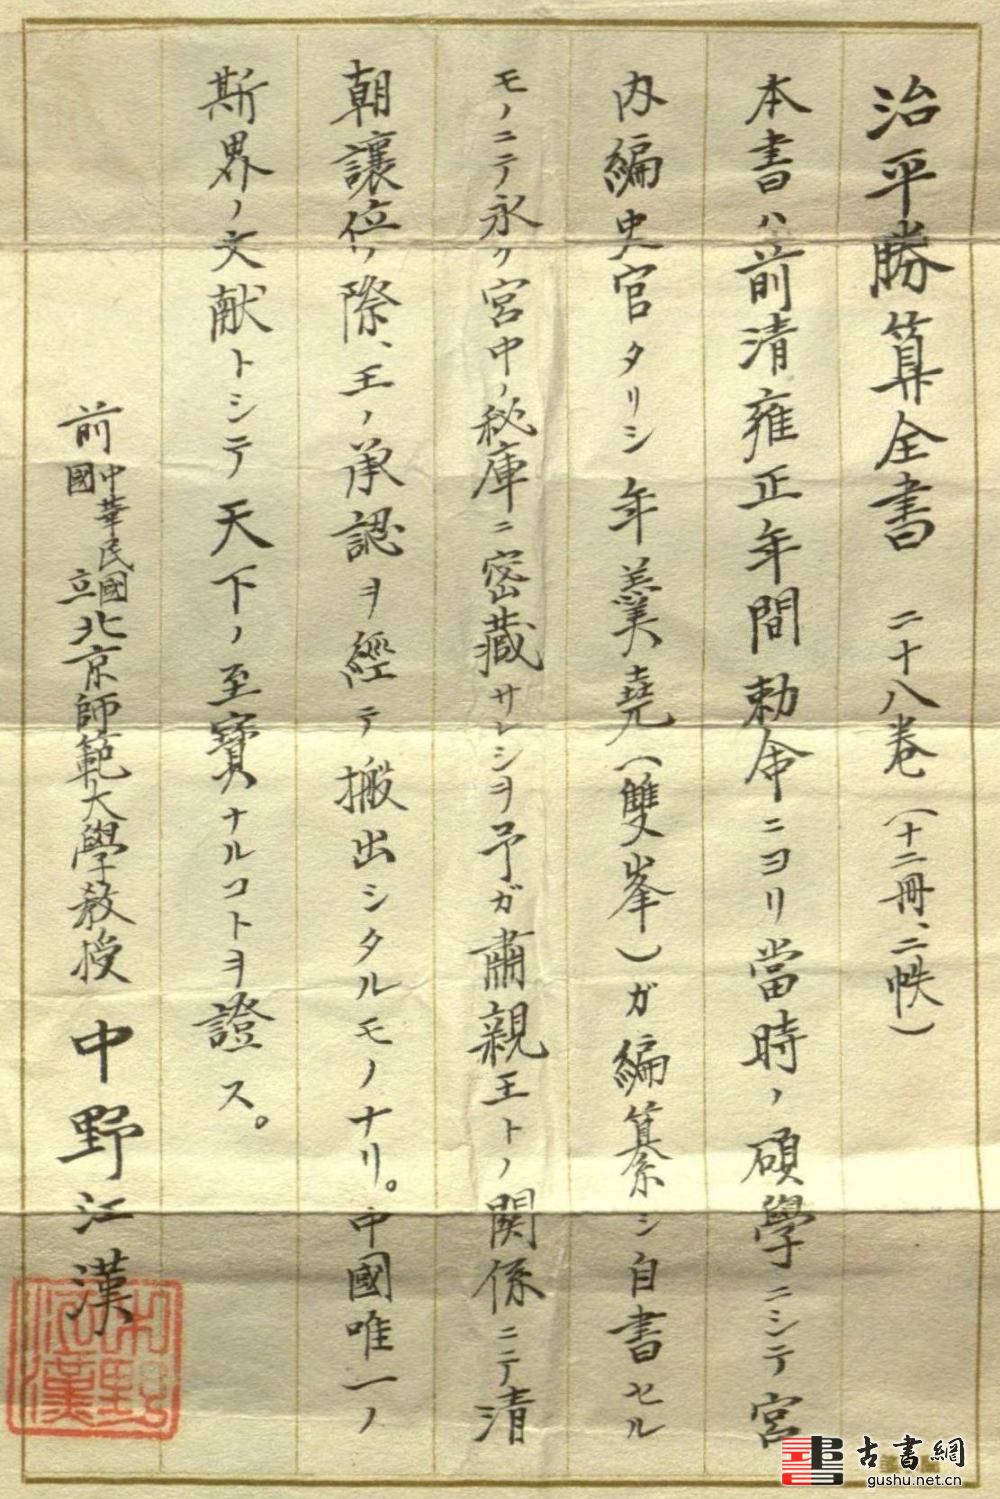 治平勝算全書　二十八卷（十二冊、二帙）
本書ハ前清雍正年間勅命ニヨリ當時ノ碩學ニシテ宮
内編史官タリシ年羹堯（雙峯）ガ編纂シ自書セル
モノニテ永ク宮中ノ秘庫ニ密藏サレシヲ予ガ肅親王トノ関係ニテ清
朝讓位ノ際、王ノ承認ヲ經テ搬出シタルモノナリ。中國唯一ノ
斯界ノ文献トシテ天下ノ至寶ナルコトヲ證ス。
前中華民國國立北京師範大學教授　中野江漢
中野江漢
古書網
gushu.net.cn